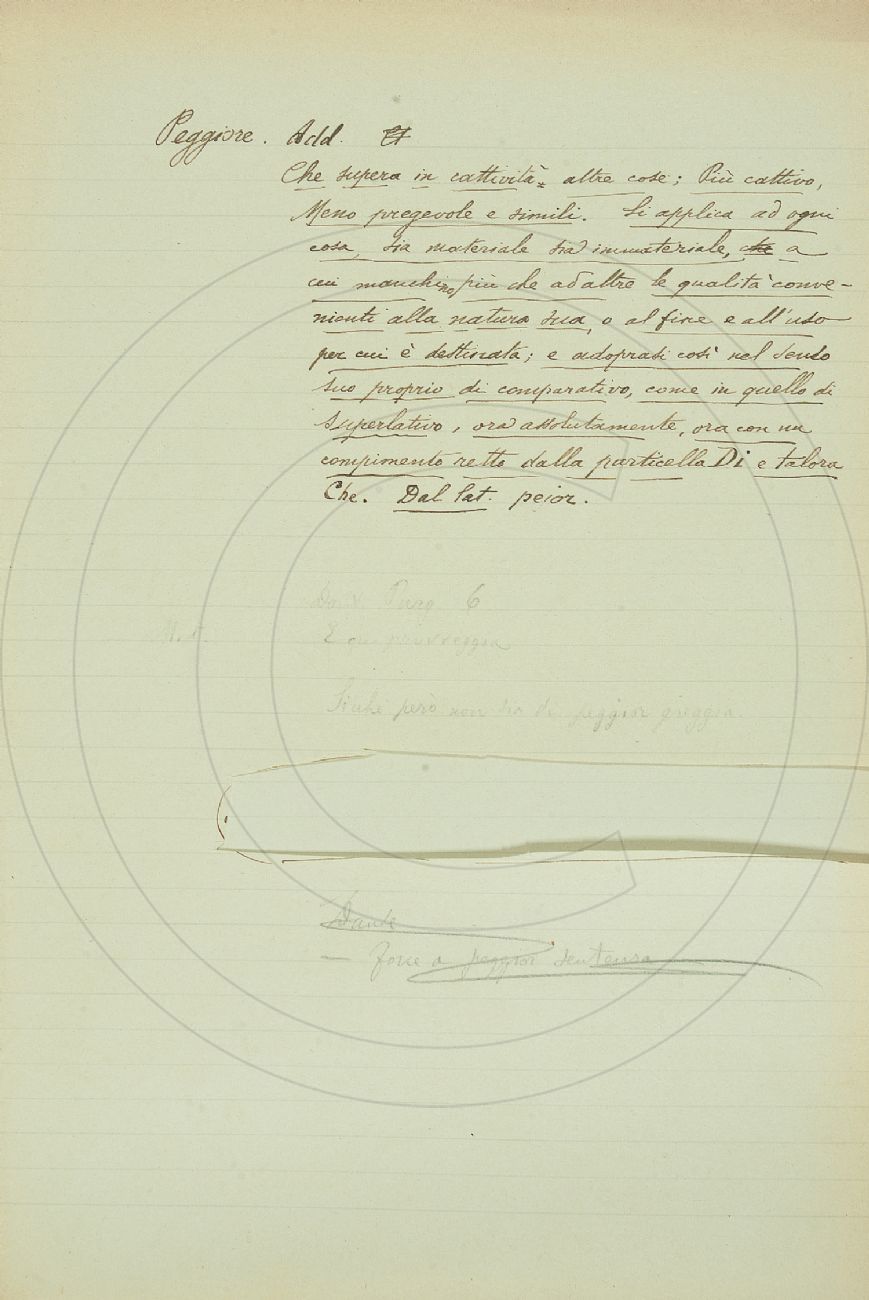 Peggiore. Add.
Che supera in cattività altre cose; Più cattivo,
Meno pregevole e simili. Si applica ad ogni
cosa, sia materiale sia immateriale, che a
cui manchino più che ad altre le qualità conve-
nienti alla natura sua, o al fine e all'uso
per cui è destinata; e adoprasi così nel senso
suo proprio di comparativo, come in quello di
Superlativo, ora assolutamente, ora con un
compimento retto dalla particella Di e talora
Che. Dal lat. peior.
Purg. 6
E
Sicché però non sia di peggior greggia.
Dante
— Forse a peggior sentenza